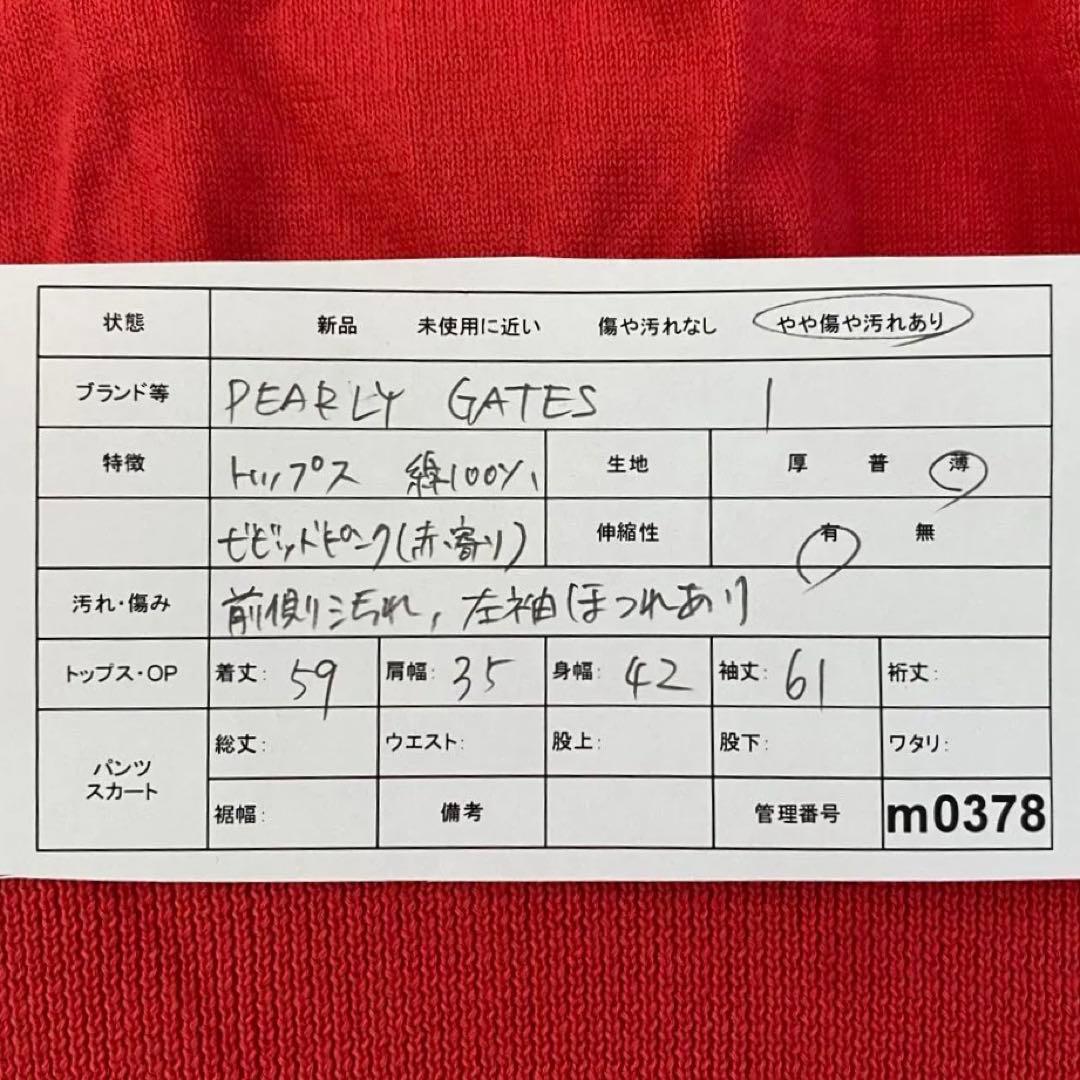 状態 新品 未使用に近い 傷や汚れなし やや傷や汚れあり
ブランド等 PEARLY GATES 1
特徴 トップス 綿100% 生地 厚 普 薄
ビビッドピンク(赤寄り) 伸縮性 有 無
汚れ・傷み 前側汚れ, 左袖ほつれあり
トップス・OP 着丈: 59 肩幅: 35 身幅: 42 袖丈: 61 裄丈:
パンツ スカート 総丈: ウエスト: 股上: 股下: ワタリ:
裾幅: 備考 管理番号 m0378